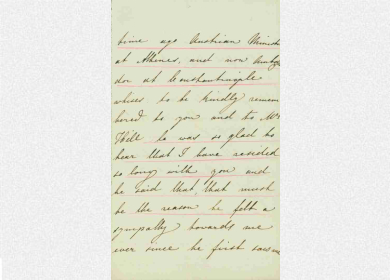 time ago Austrian Minist
at Athenes, and now Ambass
dor at Constantinople
whises to be kindly remem
bered to you and to Mrs
he was so glad to
hear that I have resided
so long with you and
he said that, that must
be the reason he felt a
sympathy towards me
ever since he first saw me